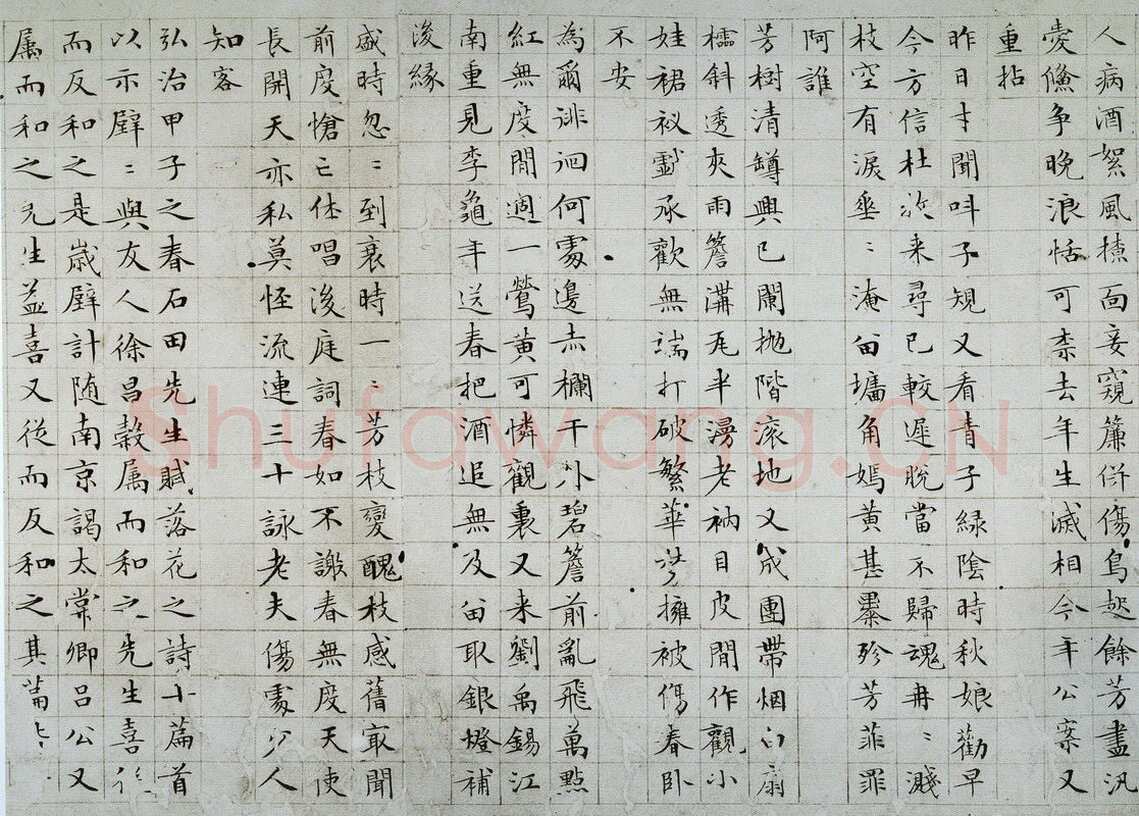 人病酒絮風面妾窺簾傷鳥趂餘芳盡汎
愛儉争晚浪恬可柰去年生滅相今年公案又
重拈
昨日才聞叫子規又看青子綠陰時秋娘勸早
今方信杜牧来尋已較遲脱當不歸魂冉〻濺
枝空有淚垂〻淹留墻角嫣黄甚暴殄芳菲罪
阿誰
芳樹清罇興已闌抛階滚地又成團帶烟白扇
櫺斜透夾雨簷溝瓦半漫老衲目皮閒作觀小
娃裙衩戯承歡無端打破繁華夢擁被傷春卧
不安
為爾徘徊何處邊赤欄干外碧簷前亂飛萬點
紅無度閒遇一鶯黄可憐觀裏又来劉禹錫江
南重見李龜年送春把酒追無及留取銀燈補
後緣
盛時忽〻到衰時一〻芳枝變醜枝感舊最聞
前度愴亡休唱後庭詞春如不謝春無度天使
長開天亦私莫怪流連三十詠老夫傷處少人
知客
弘治甲子之春石田先生賦落花之詩十篇首
以示壁〻與友人徐昌穀属而和之先生喜從
而反和之是歲壁計随南京謁太常卿吕公又
属而和之先生益喜又從而反和之其篇亡
Shufawang.CN